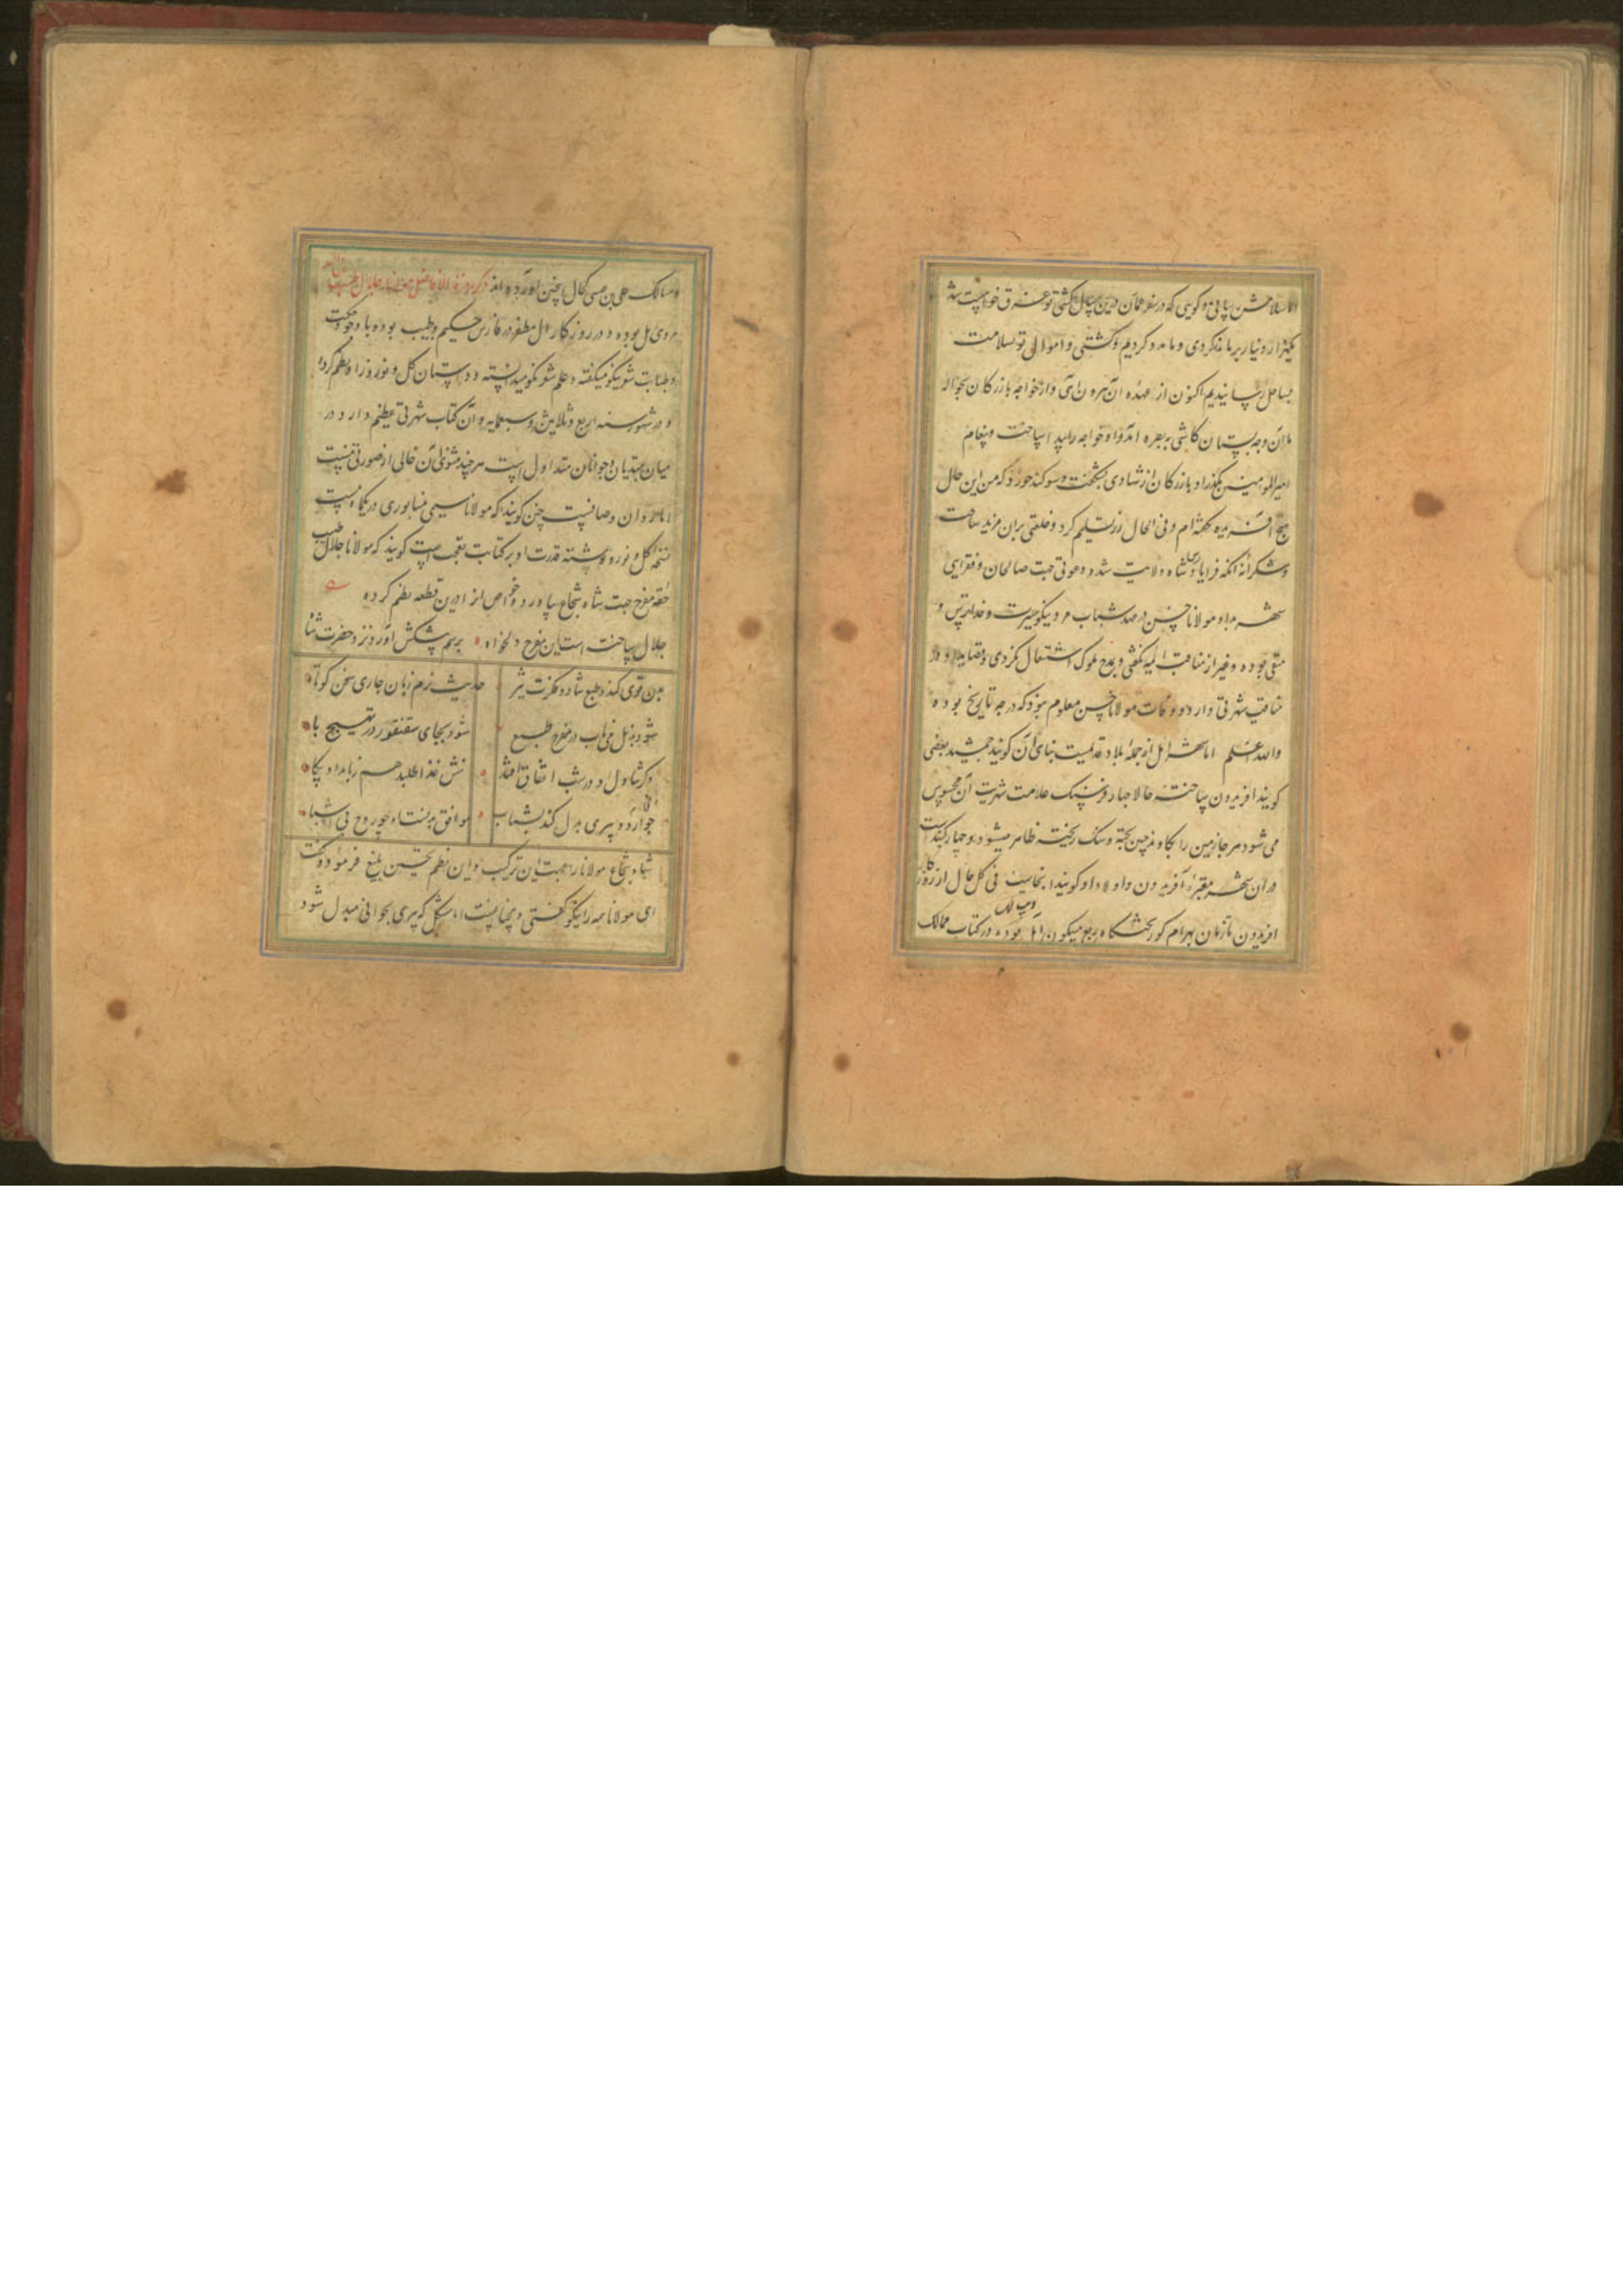 سلامش رسانی و گویی که در سفر عمان درین سال کشتی تو غرق خواست شد
یکهزار دینار بر ما نذر کردی و ما مدد کردیم و کشتی و اموال تو بسلامت
بساحل رسانیدیم اکنون از عهده آن بیرون آی و از خواجه بازرگان بحواله
ما آن وجه بستان کاشی ببصره آمد و آن خواجه را پیدا ساخت و پیغام
امیرالمومنین بگذراد بازرگان از شادی بشکفت و سوگند خورد که من این حال
بهیچ آفریده نگفته ام و فی الحال زر تسلیم کرد و خلعتی بران مزید ساخت
و شکرانه آنکه فرایاد شاه ولایت شده دعوتی جهت صالحان و فقرای
شهر بداد مولانا حسن در عهد شباب مرد نیکو سیرت و خداترس و
متقی بوده و غیر از مناقب ائمه نگفتی و بمدح ملوک اشتغال نکردی و قصاید او در
مناقب شهرتی دارد و وفات مولانا حسن معلوم نبود که در چه تاریخ بوده
والله اعلم اما شهر آمل از جمله بلاد قدیمست بنای آن گویند جمشید بعضی
گویند افریدون ساخته حالا چهار فرسنگ علامت شهریت آن محسوس
می شود هر جا زمین را بکاوند چین پخته و سنگ ریخته ظاهر میشود و چهار گنبدست
در آن شهر مقبره آفریدون و اولاد او گویند آنجاست فی کل حال از روزگار
افریدون تا زمان بهرام گور تختگاه ربع مسکون آمل بوده در کتاب ممالک
و مسالک علی بن عیسی کحال چنین آورده اند ذکر مولانا جلال طبیب
مردی اهل بوده و در روزگار آل مظفر در فارس حکیم و طبیب بوده با وجود حکمت
و طبابت شعر نیکو میگفته و علم شعر نیکو میدانسته و داستان گل و نوروز را او نظم کرده
در شهور سنه اربع و ثلاثین و سبعمایه و آن کتاب شهرتی عظیم دارد در
میان مبتدیان و جوانان متداول است هر چند مثنوی آن خالی از قصوری نیست
اما روان و صافیست چنین گویند که مولانا سیمی نیشابوری در یکماه بیست
نسخه گل و نوروز نوشته قدرت او بر کتابت بعجب است گویند که مولانا جلال طبیب
حقه مفرح جهت شاه شجاع بیاورد و خواص آن را درین قطعه نظم کرده
جلال ساخت است این مفرح دلخواه برسم پیشکش آورد نزد حضرت شاه
بدن قوی کند و طبع شاد و فکرت تیز حدیث نرم زبان جاری سخن کوتاه
شود بدل می ناب در مفرح طبع شود بجای سقنقور در تهییج باه
گر تناول او در شب اتفاق افتد تنش غذا طلبد هم ز بامداد پگاه
قوای او پیری بدل کند بشباب موافق بدنست او چو روح بی اشباه
شاه شجاع مولانا را جهت این ترکیب و این نظم تحسین بلیغ فرمود و گفت
ای مولانا همه را نیکو گفتی و چنانست اما مشکل که پیری بجوانی مبدل شود